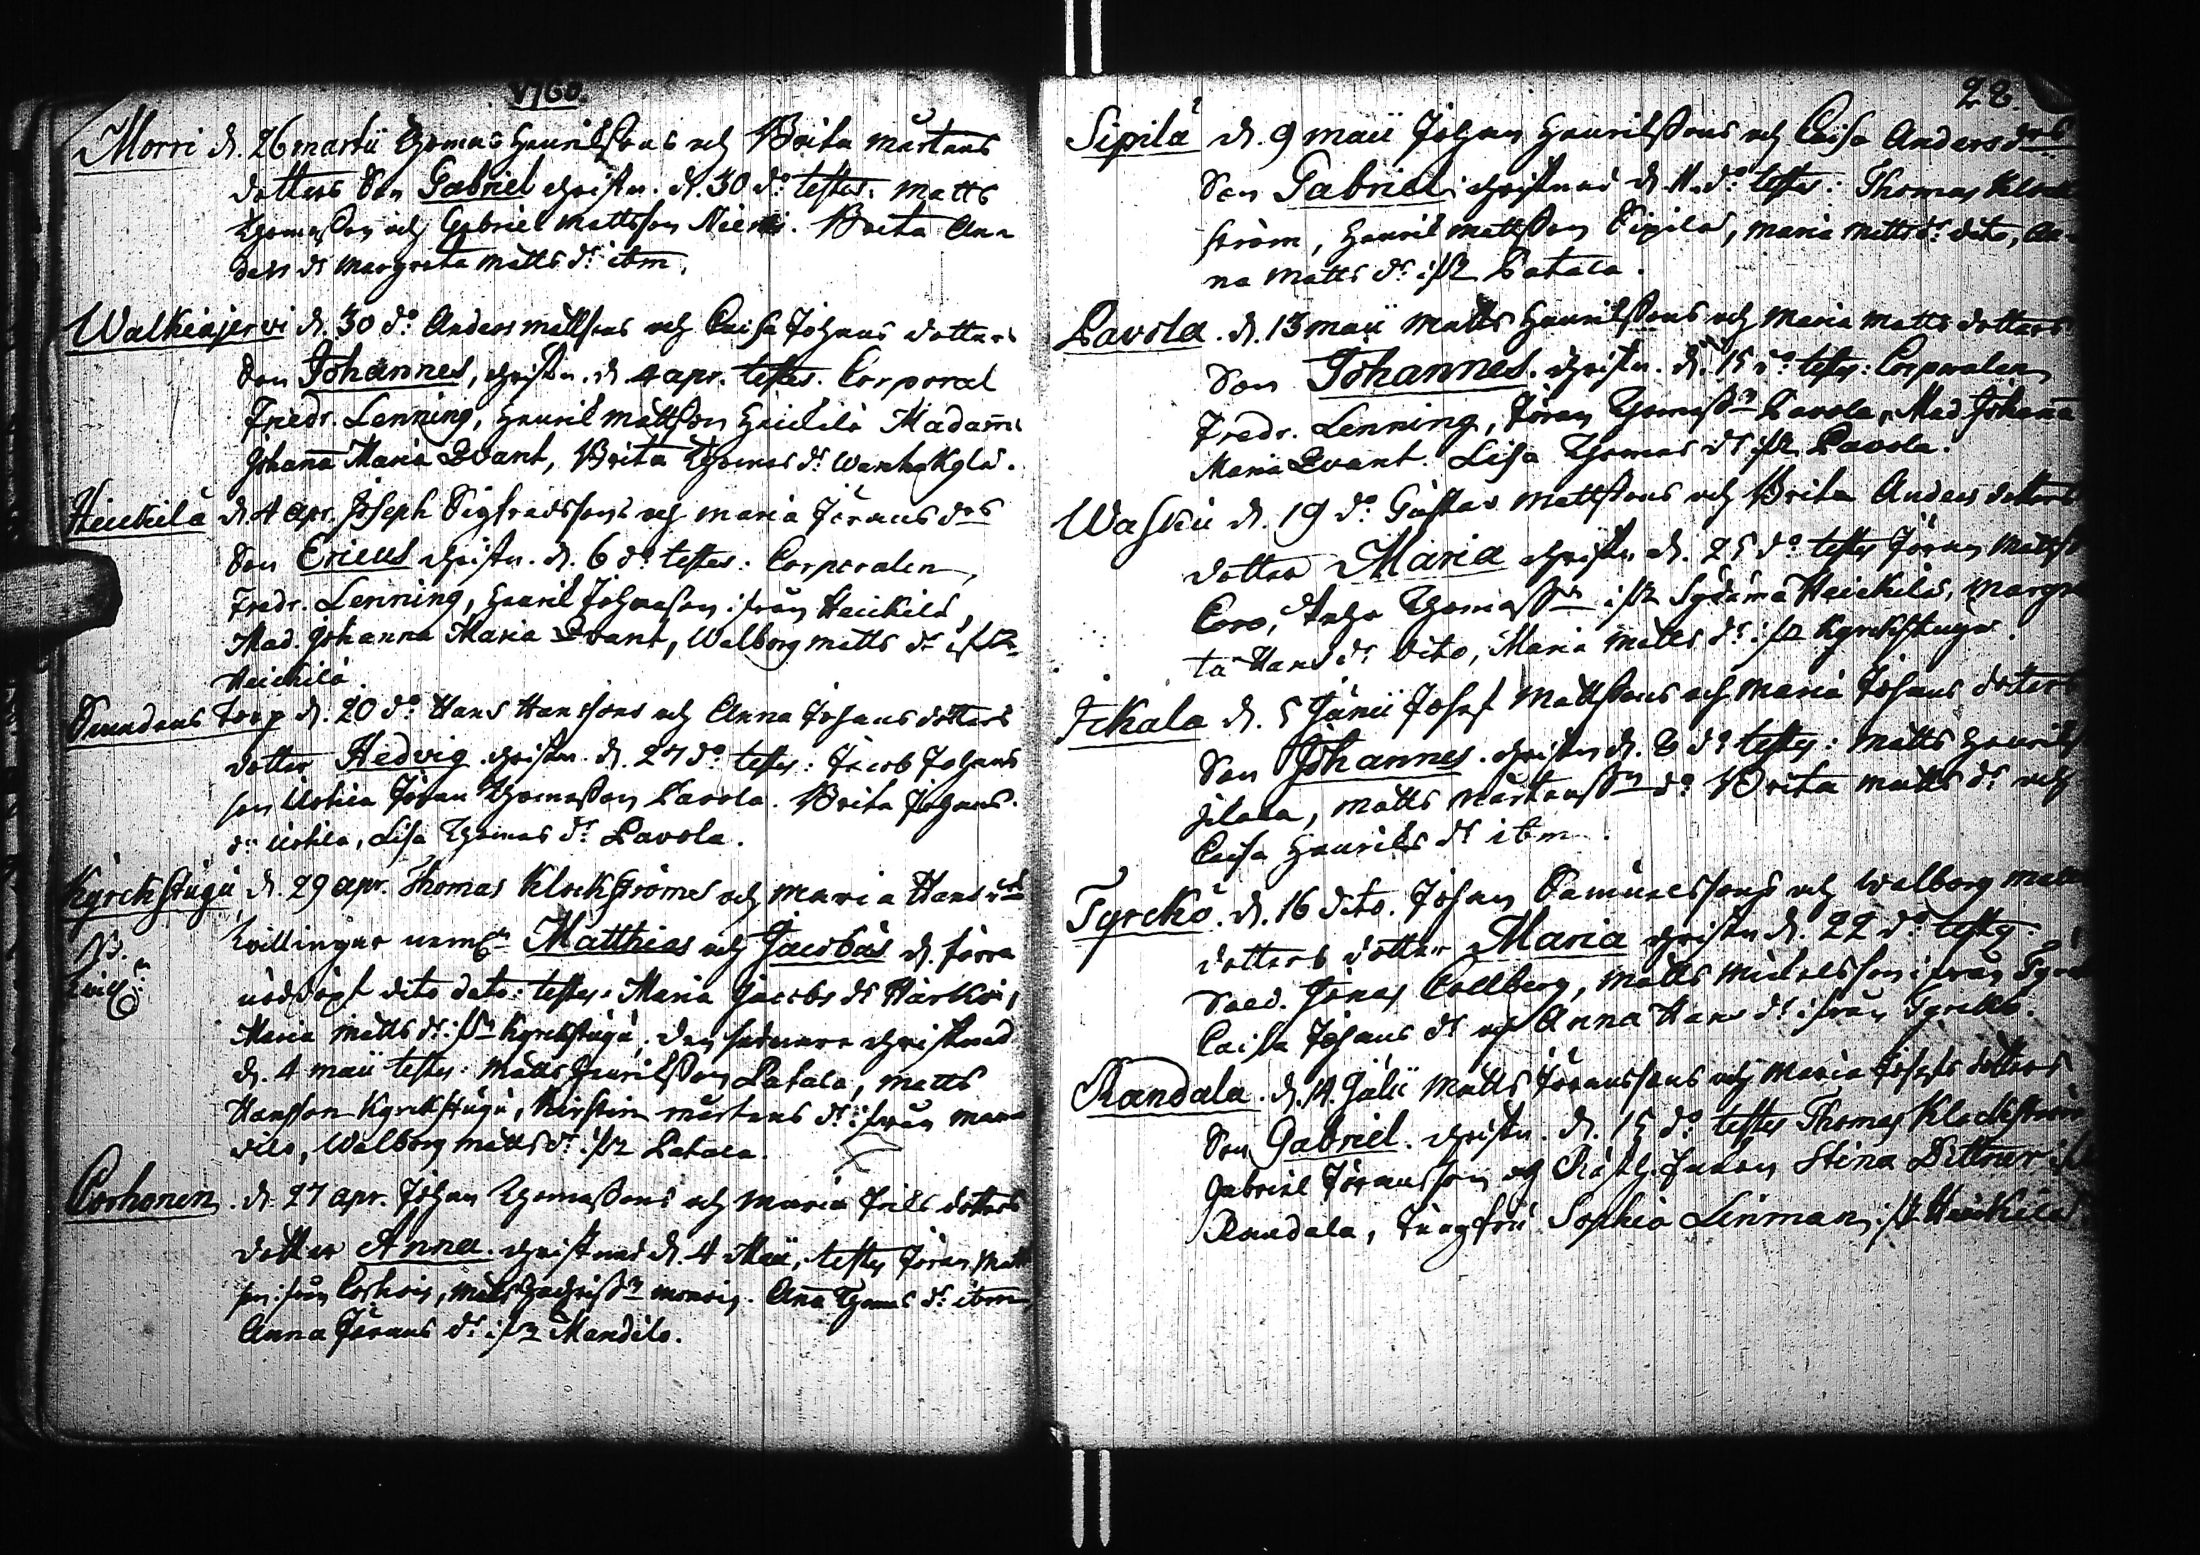 1760.
Morri d. 26 martii Thomas Henrikssons och Brita Mårtens
dotters Son Gabriel christn. d. 30 do testes: Matts
Thomasson och Gabriel Mattsson Niemi. Brita An-
ders dr Margreta Matts dr ibm.
Walkiajervi d. 30 do Anders Mattsons och Caisa Johans dotters
Son Johannes, christn. d. 4 apr. testes. Corporal
Fredr. Lenning, Henrik Mattson Heickilä Madame
Johana Maria Qvant, Brita Thomas dr
Heickilä d. 4 apr. Joseph Sigfredssons och Maria Jörans drs
Son Ericus christn. d. 6 do testes: Corporalen
Fredr. Lenning, Henrik Johansson ifrån Heickilä,
Mad. Johanna Maria Qvant, Walborg Matts dr
Heickilä.
torp d. 20 do Hans Hanssons och Anna Johans dotters
dotter Hedvig christn. d. 27 do testes: Jacob Johans
son Uotila Jöran Thomasson Pavola. Brita Johans
dr Uotila, Lisa Thomas dr Pavola.
Kyrckstugu d. 29 apr. Thomas Klockströms och Maria Hans drs
NB. tvillingar neml. Matthias och Jacobus d. förra
nöddöpt dito dato: testes: Maria Jacobs dr Harkoi,
Maria Matts dr Kyrckstugu, den sednare christnad
d. 4 maii testes: Matts Henriksson Patala, Matts
Hansson Kyrckstugu, Kirstin Mårtens dr ifrån Man
dils, Walborg Matts dr Patala.
Corhonen. d. 27 apr. Johan Thomassons och Maria Eriks dotters
dotter Anna. christnad d. 4 Maii, testes Jöran Matt
son ifrån Matts Ana Thomas dr ibm,
Anna Jörans dr Mandils.
22.
Sipilä d. 9 maii Johan Henrikssons och Caisa Anders drs
Son Gabriel christnad d. 11. do testes: Thomas Klock
ström, Henrik Mattson Sipilä, Maria Matts dr dito, An-
na Matts dr Patala.
Pavola. d. 13 maii Matts Henrikssons och Maria Matts dotters
Son Johannes. christn. d. 15 do testes: Corporalen
Fredr. Lenning, Jöran Thomass Pavola, Mad. Johana
Maria Qvant. Lisa Thomas dr Pavola.
Waskii d. 19 do Gustav Mattsons och Brita Anders dotters
dotter Maria christn. d. 25 do testes Jöran Matts
Thomass Heickilä, Margre
ta Hans dr dito, Maria Matts dr Kyrckstugu.
d. 5 Junii Josef Mattsons och Maria Johans dotters
Son Johannes. christn d. 8 do testes: Matts Henriks
Matts Mårtenss do Brita Matts dr och
Caisa Henriks dr ibm.
Tyrckö. d. 16 dito. Johan Samuelssons och Walborg Matts
dotters dotter Maria christn d. 22 do testes
Jonas Collberg, Matts Mickelsson ifrån
Caisa Johans dr och Anna Hans dr ifrån Tyrckö.
Randala. d. 14. Julii Matts Jöranssons och Maria Josephs dotters
Son Gabriel. christn. d. 15 do testes Thomas Klockström
Gabriel Jöransson och Stina
Randala, Jungfru Sophia Linman Heickilä